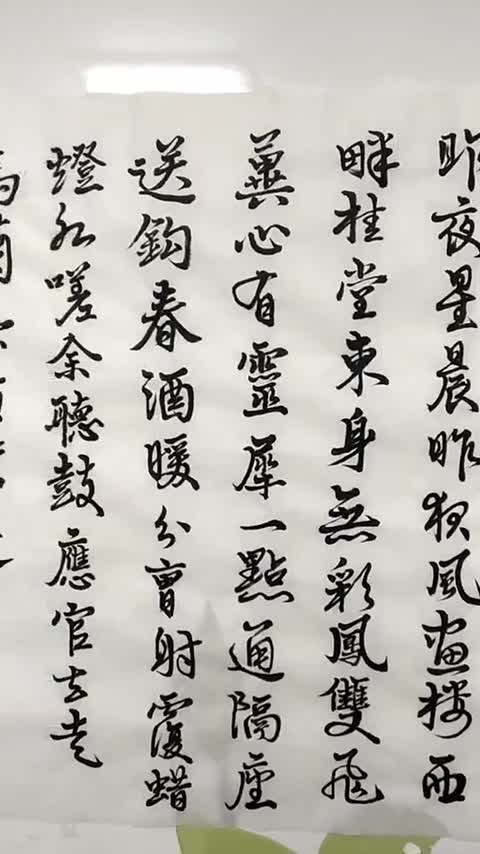 昨夜星晨昨夜風畫楼西
畔桂堂東身無彩鳳雙飛
翼心有靈犀一點通隔座
送鈎春酒暖分曹射覆蜡
燈紅嗟余聽鼓應官去走